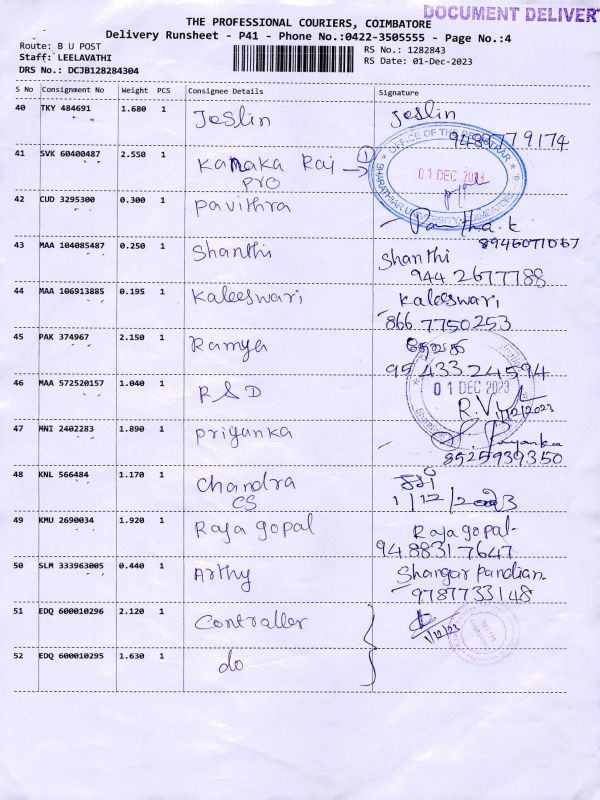 DOCUMENT DELIVER
THE PROFESSIONAL COURIERS, COIMBATORE
Delivery Runsheet - P41 - Phone No.:0422-3505555 - Page No.:4
Route: B U POST
Staff: LEELAVATHI
DRS No.: DCJB128284304
RS No.: 1282843
RS Date: 01-Dec-2023
S No Consignment No Weight PCS Consignee Details Signature
40 TKY 484691 1.680 1 Jeslin Jeslin
9489779174
41 SVK 60400487 2.550 1 Kanaka Raj → 1
PRO
OFFICE OF THE REGISTRAR
01 DEC 2023
BHARATHIAR UNIVERSITY
42 CUD 3295300 0.300 1 Pavithra
8946071067
43 MAA 104085487 0.250 1 Shanthi Shanthi
944 2677788
44 MAA 106913885 0.195 1 Kaleeswari Kaleeswari
866 7750253
45 PAK 374967 2.150 1 Ramya தேவகி
9543324594
46 MAA 572520157 1.040 1 R&D
01 DEC 2023
47 MNI 2402283 1.890 1 Priyanka S. Priyanka
8925939350
48 KNL 566484 1.170 1 Chandra
CS 1/12/2023
49 KMU 2690034 1.920 1 Raja gopal Rajagopal
9488317647
50 SLM 333963005 0.440 1 Arthy Shangar Pandian
9787733148
51 EDQ 600010296 2.120 1 Controller
1/12/23
52 EDQ 600010295 1.630 1 do